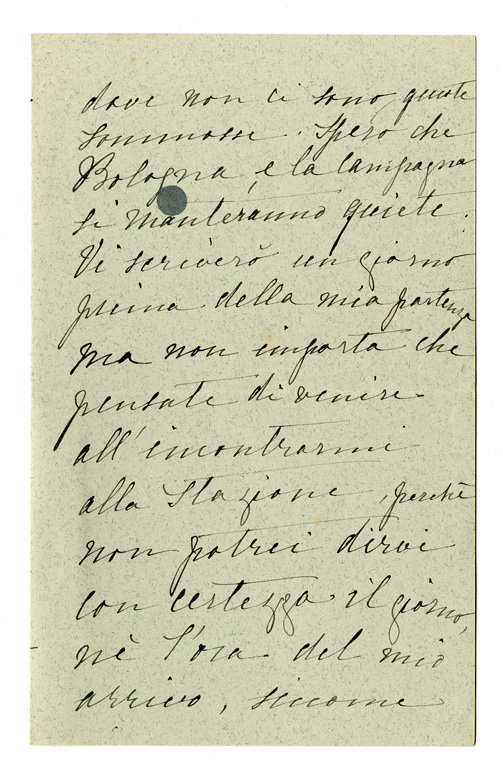 dove non ci sono queste
sommosse. Spero che
Bologna, e la campagna
si manteranno quiete.
Vi scriverò un giorno
prima della mia partenza
ma non importa che
pensate di venire
all'incontrarmi
alla Stazione, perchè
non potrei dirvi
con certezza il giorno,
nè l'ora del mio
arrivo, sicome